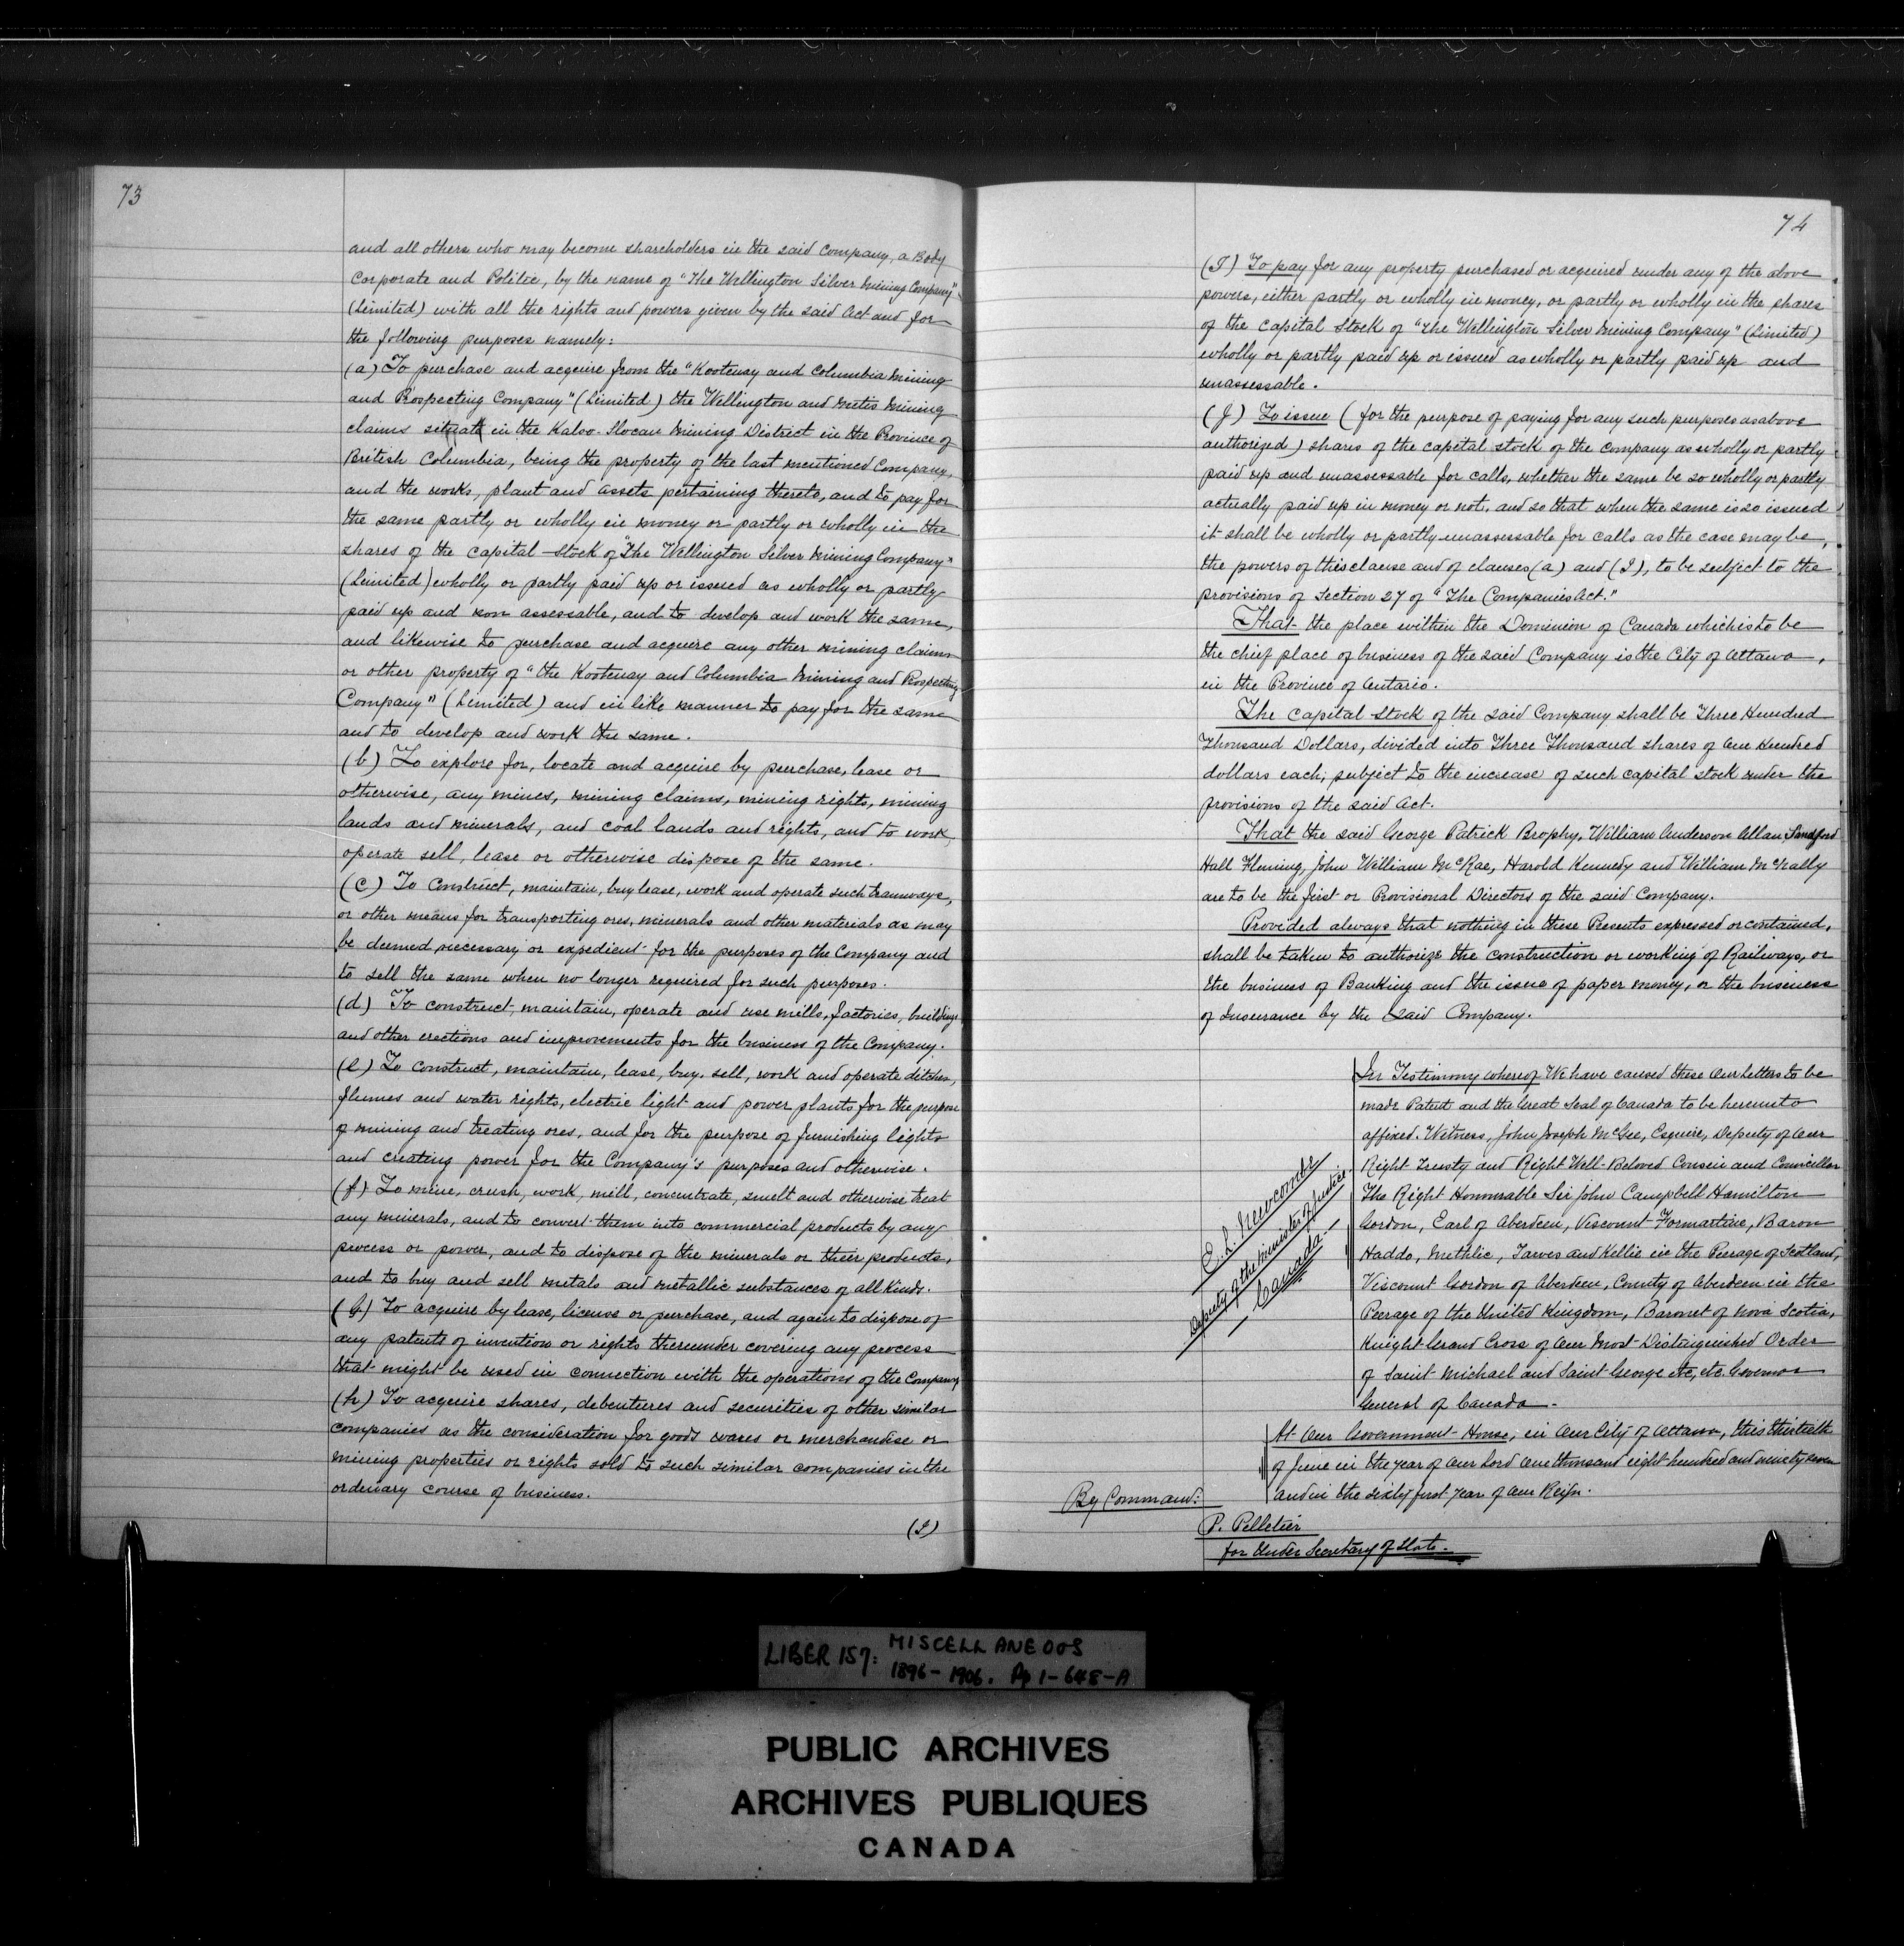 73
and all others who may become shareholders in the said Company, a Body
Corporate and Politic, by the name of "The Wellington Silver Mining Company"
(Limited) with all the rights and powers given by the said Act and for
the following purposes namely:
(a) To purchase and acquire from the "Kootenay and Columbia Mining
and Prospecting Company" (Limited) the Wellington and Metis Mining
claims situate in the Kalso-Slocan Mining District in the Province of
British Columbia, being the property of the last mentioned Company,
and the works, plant and assets pertaining thereto, and to pay for
the same partly or wholly in money or partly or wholly in the
shares of the capital stock of "The Wellington Silver Mining Company"
(Limited) wholly or partly paid up or issued as wholly or partly
paid up and non assessable, and to develop and work the same,
and likewise to purchase and acquire any other mining claims
or other property of "the Kootenay and Columbia Mining and Prospecting
Company" (Limited) and in like manner to pay for the same
and to develop and work the same.
(b) To explore for, locate and acquire by purchase, lease or
otherwise, any mines, mining claims, mining rights, mining
lands and minerals, and coal lands and rights, and to work,
operate sell, lease or otherwise dispose of the same.
(c) To Construct, maintain, buy lease, work and operate such tramways,
or other means for transporting ores, minerals and other materials as may
be deemed necessary or expedient for the purposes of the Company and
to sell the same when no longer required for such purposes.
(d) To construct, maintain, operate and use mills, factories, buildings
and other erections and improvements for the business of the Company.
(e) To construct, maintain, lease, buy, sell, work and operate ditches,
flumes and water rights, electric light and power plants for the purpose
of mining and treating ores, and for the purpose of furnishing lights
and creating power for the Company's purposes and otherwise.
(f) To mine, crush, work, mill, concentrate, smelt and otherwise treat
any minerals, and to convert them into commercial products by any
process or power, and to dispose of the minerals or their products,
and to buy and sell metals and metallic substances of all Kinds.
(g) To acquire by lease, license or purchase, and again to dispose of
any patents of invention or rights thereunder covering any process
that might be used in connection with the operations of the Company
(h) To acquire shares, debentures and securities of other similar
companies as the consideration for goods wares or merchandise or
mining properties or rights sold to such similar companies in the
ordinary course of business.
(I)
74
(I) To pay for any property purchased or acquired under any of the above
powers, either partly or wholly in money, or partly or wholly in the shares
of the capital stock of "The Wellington Silver Mining Company" (Limited)
wholly or partly paid up or issued as wholly or partly paid up and
unassessable.
(J) To issue (for the purpose of paying for any such purposes as above
authorized) shares of the capital stock of the company as wholly or partly
paid up and unassessable for calls, whether the same be so wholly or partly
actually paid up in money or not, and so that when the same is so issued
it shall be wholly or partly unassessable for calls as the case may be,
the powers of this clause and of clauses (a) and (I), to be subject to the
provisions of Section 27 of "The Companies Act."
That the place within the Dominion of Canada which is to be
the chief place of business of the said Company is the City of Ottawa,
in the Province of Ontario.
The Capital Stock of the said Company shall be Three Hundred
Thousand Dollars, divided into Three Thousand shares of One Hundred
dollars each, subject to the increase of such capital stock under the
provisions of the said Act.
That the said George Patrick Brophy, William Anderson Allan, Sandford
Hall Fleming, John William McRae, Harold Kennedy and William McNally
are to be the first or Provisional Directors of the said Company.
Provided always that nothing in these Presents expressed or contained,
shall be taken to authorize the construction or working of Railways, or
the business of Banking and the issue of paper money, or the business
of Insurance by the said Company.
In Testimony whereof We have caused these Our Letters to be
made Patent and the Great Seal of Canada to be hereunto
affixed. Witness, John Joseph McGee, Esquire, Deputy of Our
Right Trusty and Right Well-Beloved Cousin and Councillor
The Right Honourable Sir John Campbell Hamilton
Gordon, Earl of Aberdeen, Viscount Formartine, Baron
Haddo, Methlic, Tarves and Kellie in the Peerage of Scotland,
Viscount Gordon of Aberdeen, County of Aberdeen in the
Peerage of the United Kingdom, Baronet of Nova Scotia,
Knight Grand Cross of Our Most Distinguished Order
of Saint Michael and Saint George etc, etc. Governor
General of Canada.
E. L. Newcombe
Deputy of the Minister of Justice
Canada
At Our Government House, in Our City of Ottawa, this thirtieth
of June in the year of Our Lord One thousand eight hundred and ninety seven
and in the sixty first year of Our Reign.
By Command:
P. Pelletier
for Under Secretary of State.
LIBER 157: MISCELLANEOUS
1896-1906. Pp 1-648-A
PUBLIC ARCHIVES
ARCHIVES PUBLIQUES
CANADA